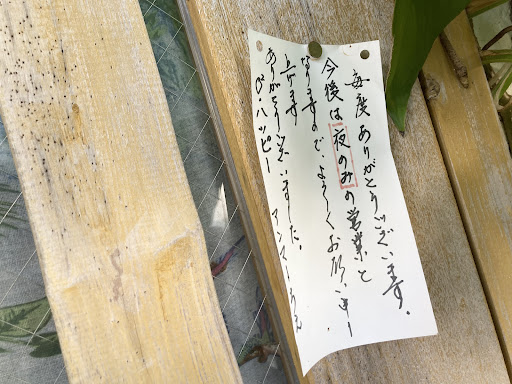 毎度ありがとうございます。
今後は夜のみの営業と
なりますので、よろしくお願い申し
上げます
ありがとうございました。
B・ハッピー